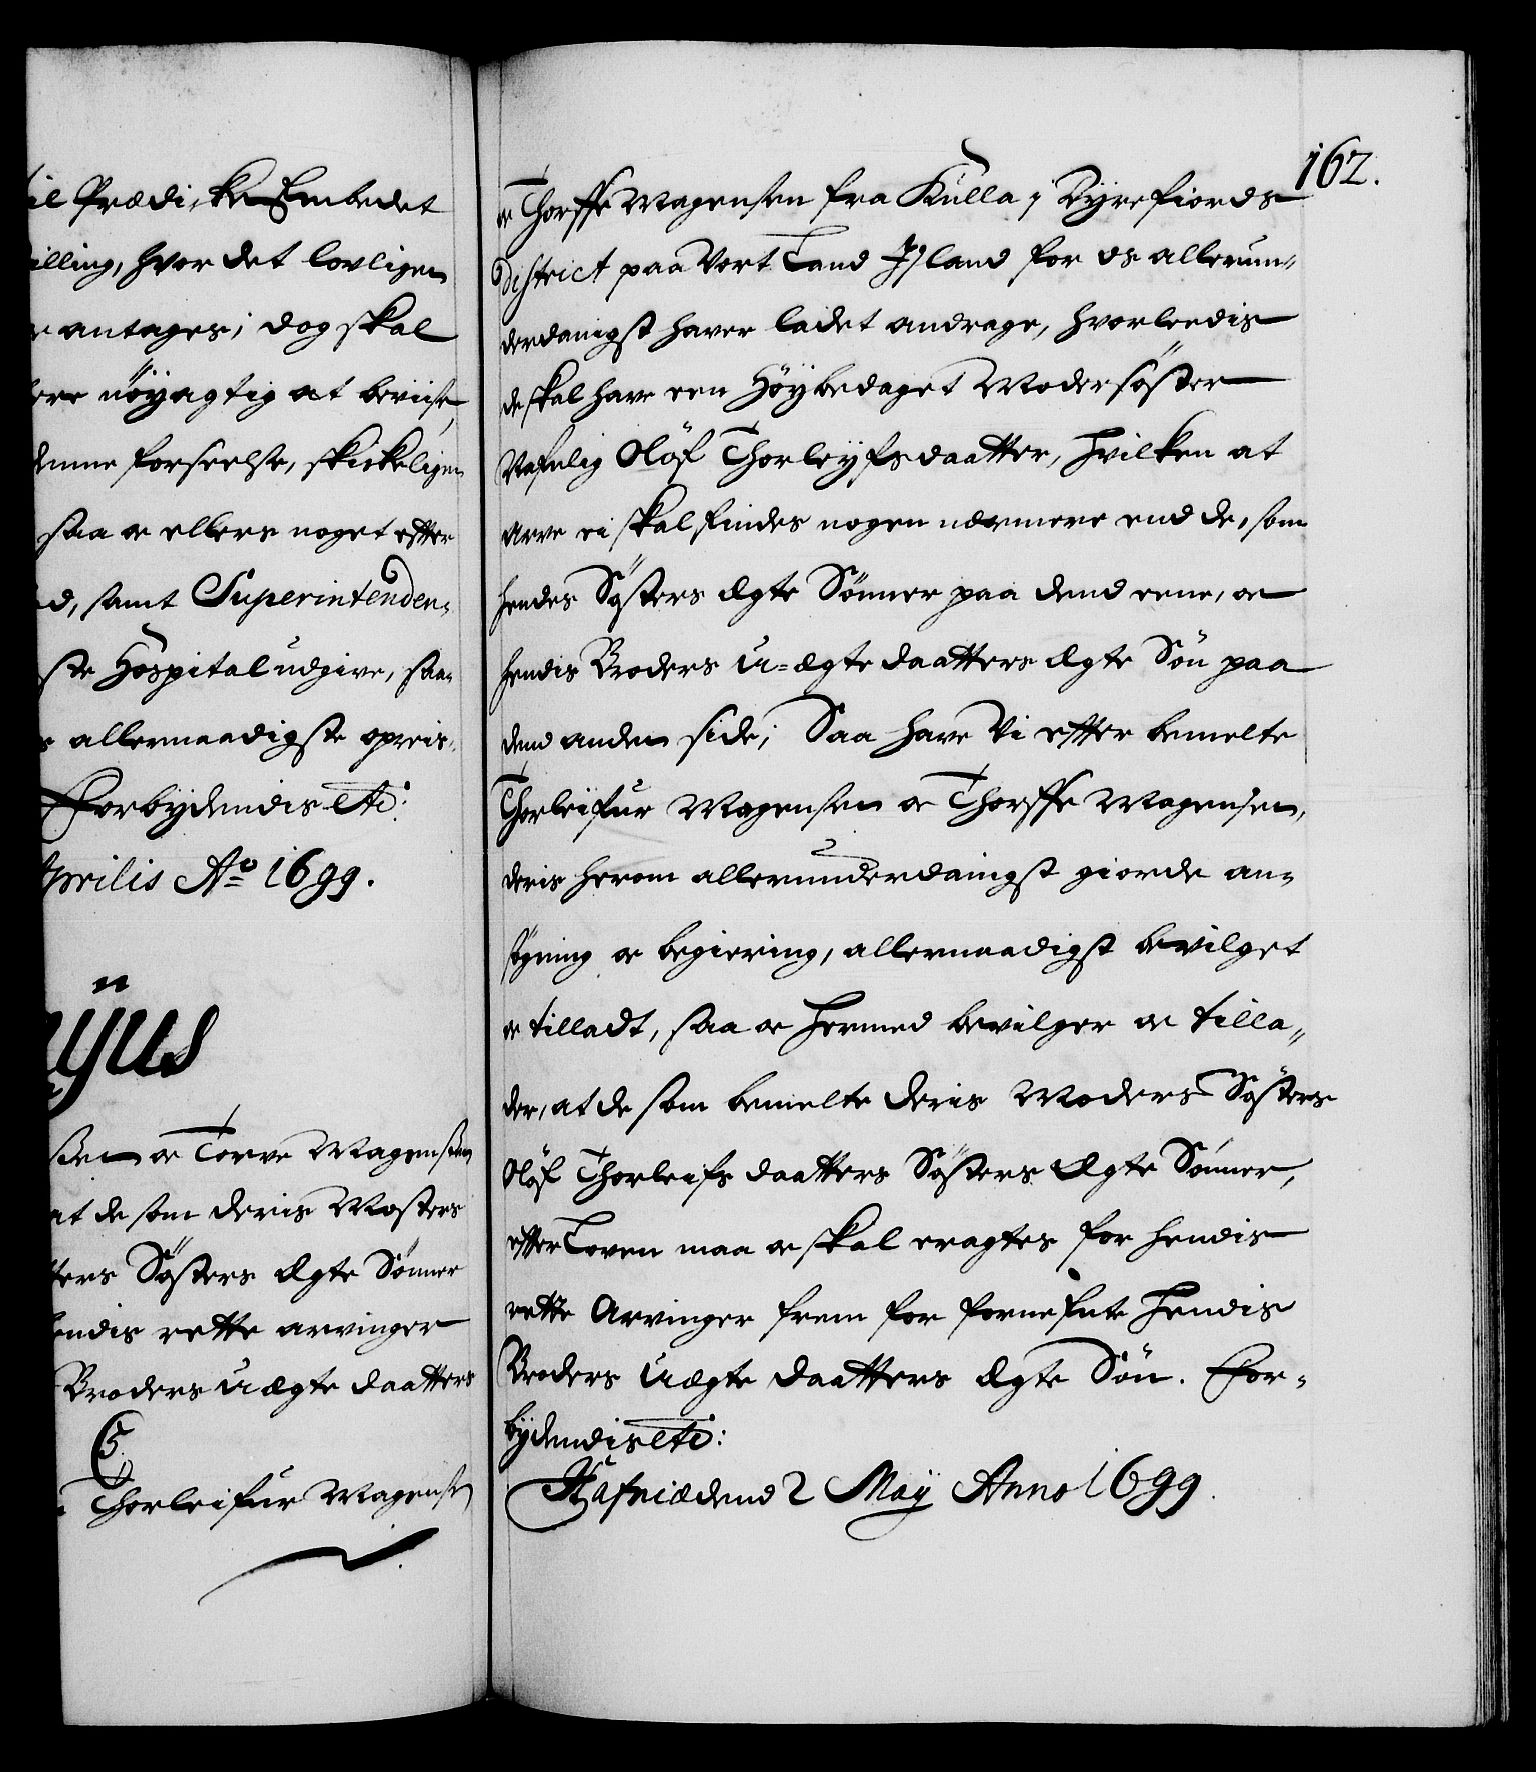 il Prædicke Embedet
illing, hvor det lovligen
antages; dog skal
ere nöyagtig at beviise,
denne forseelse, skickeligen
saa oc ellers noget efter
d, samt Superintenden-
ste Hospital udgive, saa-
allernaadigste opreis-
Forbydendis etc:
Aprilis Ao 1699.
Majus
sen oc Torve Magensen
at de som deris Mosters
ters Sösters Ægte Sönner
hendis rette arvinger
Broders uægte daatters
C5.
Thorleifur Magens:
162.
oc Thorffe Magensen fra Kulla i Dyrefiords
District paa Vort Land Jsland for os allerun-
derdanigst haver ladet andrage, hvorledis
de skal have een Höybedaget Modersöster
Nafnlig Olöf Thorleyfsdaatter, hvilken at
arve ei skal findes nogen nærmere end de, som
hendes Sösters Ægte Sönner paa dend eene, oc
hendis Broders U-ægte daatters Ægte Sön paa
dend anden side; Saa have Vi efter bemelte
Thorleifur Magensen oc Thorffe Magensen,
deris herom allerunderdanigst giorde an-
sögning oc begiering, allernaadigst bevilget
oc tilladt, saa oc hermed bevilger oc tilla-
der, at de som bemelte deris Moders Sösters
Olöf Thorleifs daatters Sösters Ægte Sönner,
efter Loven maa oc skal eragtes for hendis
rette Arvinger frem for fornefnte hendis
Broders Uægte daatters Ægte Sön. For-
bydendis etc:
Hafniæ dend 2 Maÿ Anno 1699.